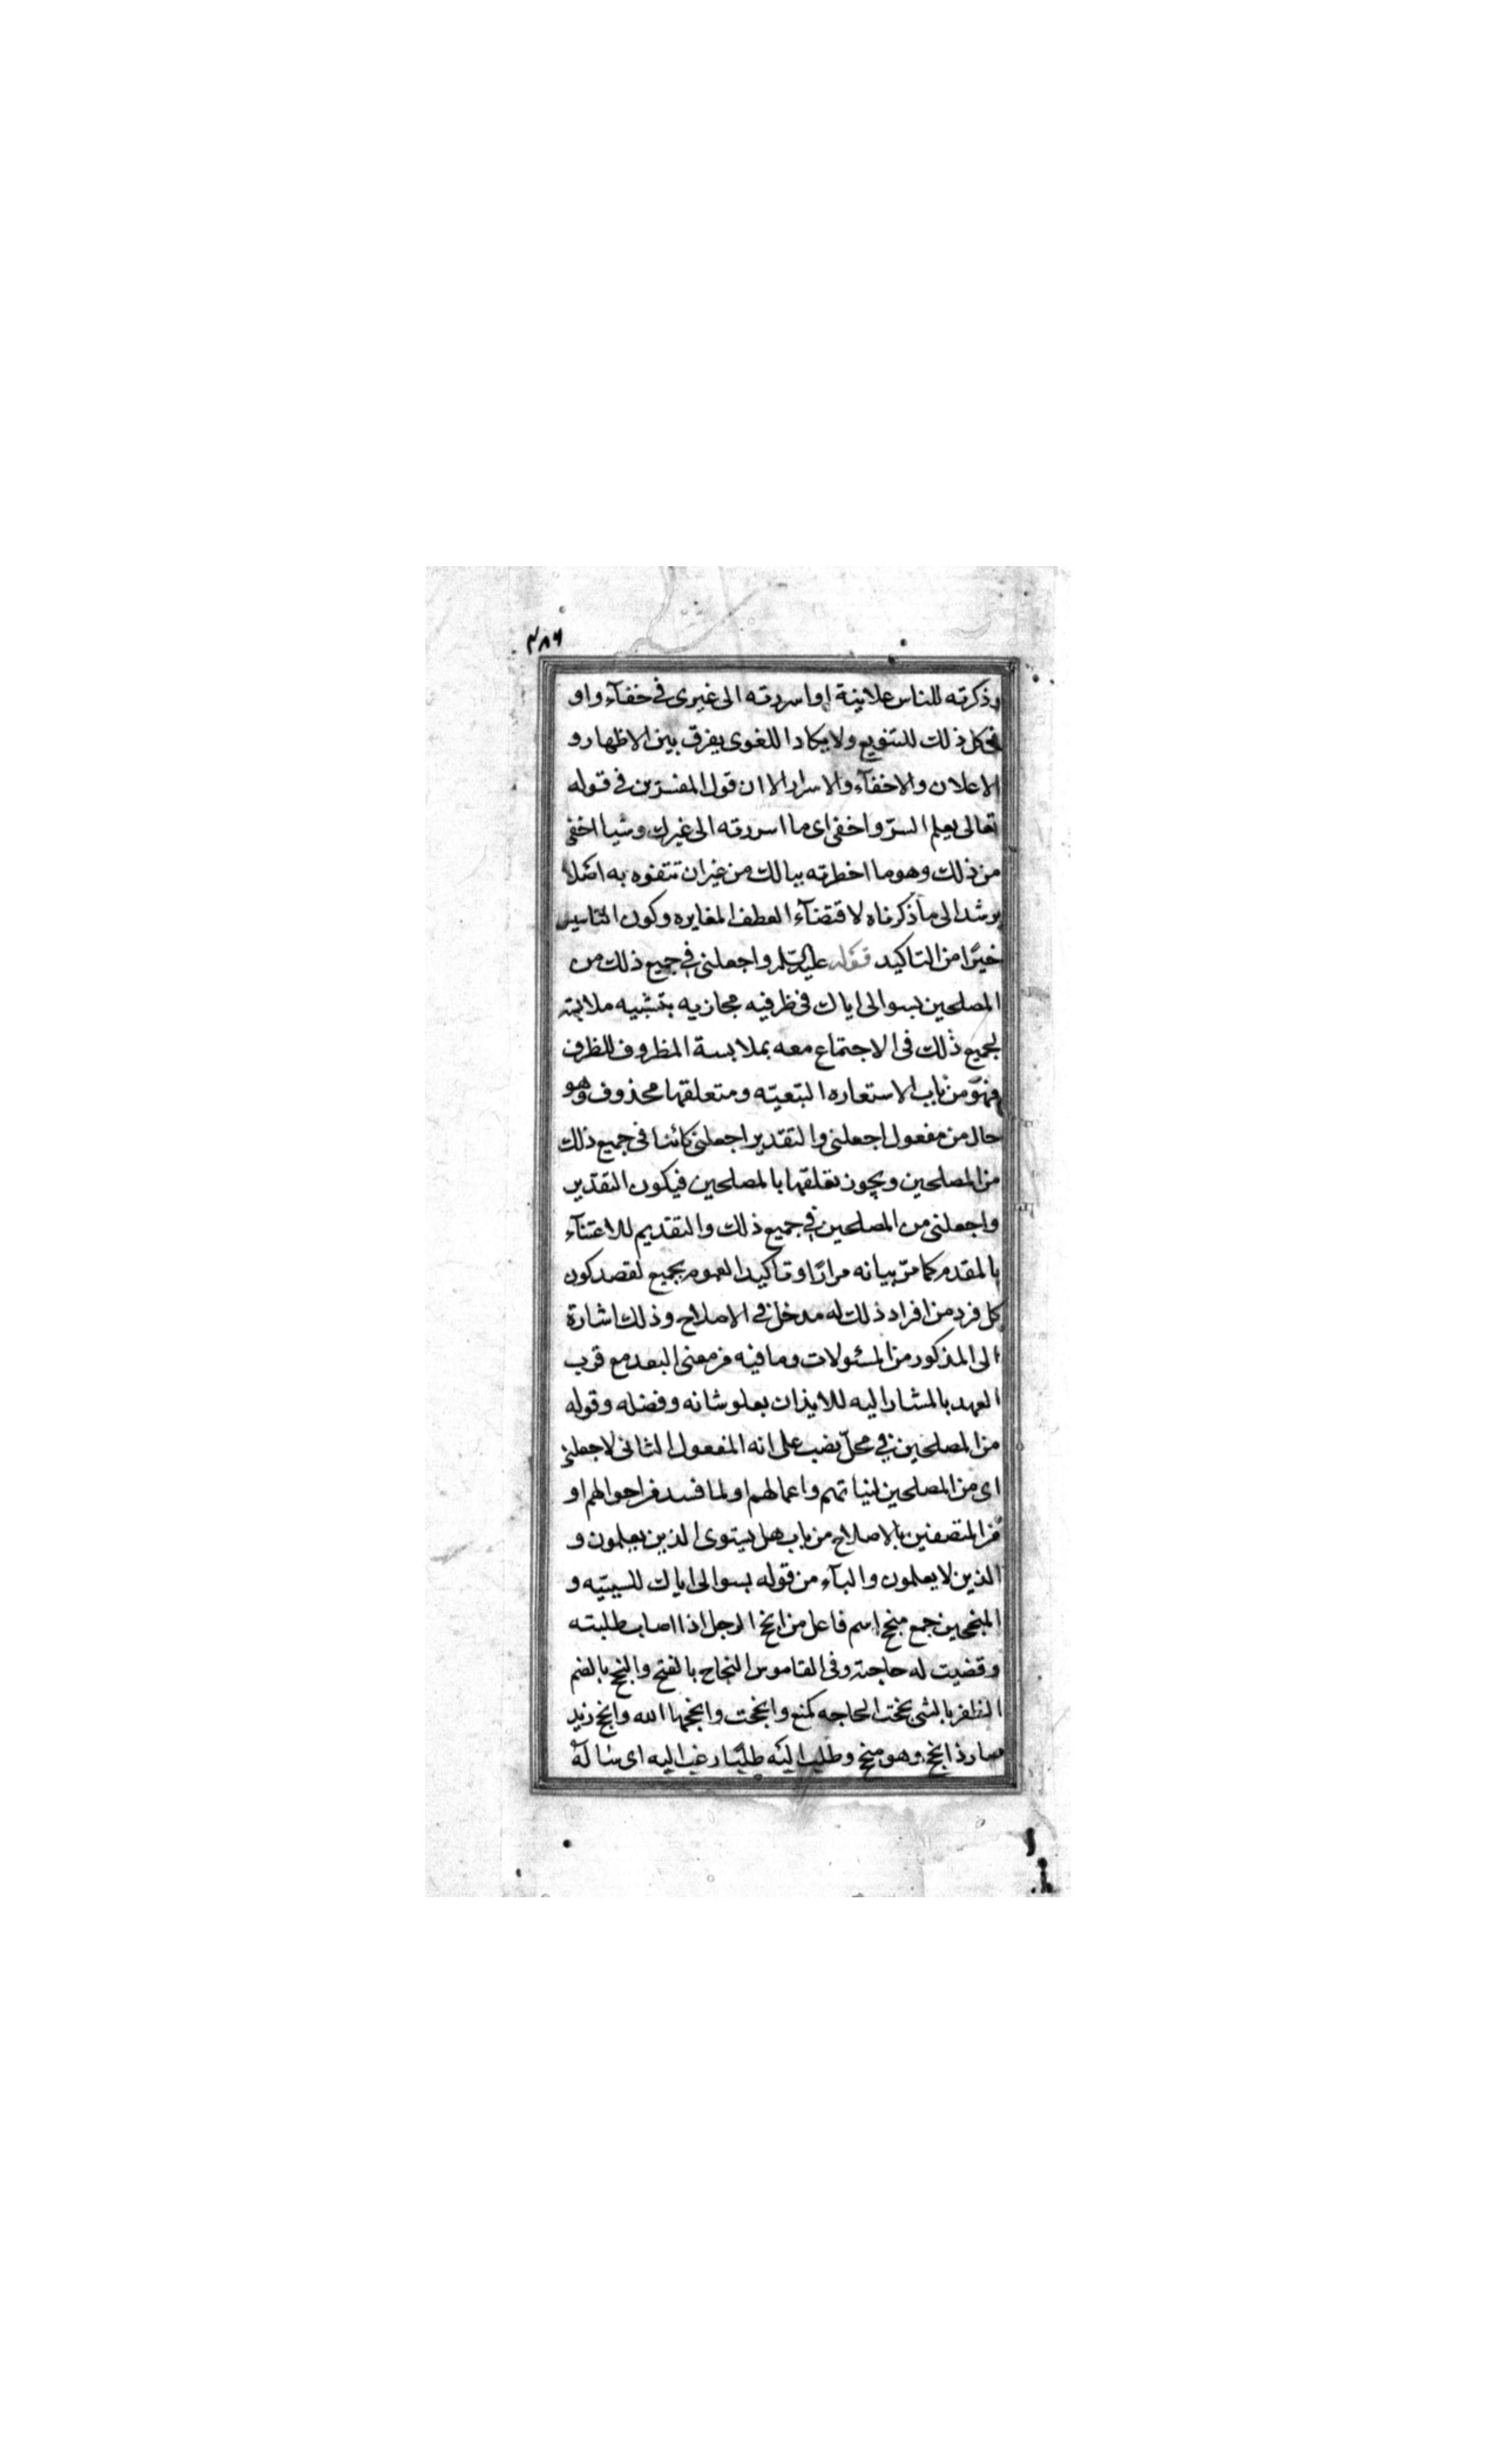 ٣٨٦
وذكرته للناس علانية او اسررته الى غيرى فى خفآء واو
فى كل ذلك للتنويع ولا يكاد اللغوى يفرق بين الاظهار و
الاعلان والاخفآء والاسرار الا ان قول المفسرين فى قوله
تعالى يعلم السرّ واخفى اى ما اسررته الى غيرك وشيا اخفى
من ذلك وهو ما اخطرته ببالك من غير ان تتفوه به اصلا
يرشد الى ما ذكرناه لاقتضآء العطف المغايره وكون التاسيس
خيرًا من التاكيد قوله عليه السلم واجعلنى فى جميع ذلك من
المصلحين بسوالى اياك فى ظرفيه مجازيه بتشبيه ملابسته
لجميع ذلك فى الاجتماع معه بملابسة المظروف للظرف
فهو من باب الاستعاره التبعيّه ومتعلقها محذوف وهو
حال من مفعول اجعلنى والتقدير اجعلنى كائنا فى جميع ذلك
من المصلحين ويجوز تعلقها بالمصلحين فيكون التقدير
واجعلنى من المصلحين فى جميع ذلك والتقديم للاعتنآء
بالمقدم كما مرّ بيانه مرارًا وتاكيد العموم بجميع لقصد كون
كل فرد من افراد ذلك له مدخل فى الاصلاح وذلك اشارة
الى المذكور من المسئولات وما فيه من معنى البعد مع قرب
العهد بالمشار اليه للايذان بعلو شانه وفضله وقوله
من المصلحين فى محلّ نصب على انه المفعول الثانى لاجعلنى
اى من المصلحين لنياتهم واعمالهم او لما فسد من احوالهم او
من المتصفين بالاصلاح من باب هل يستوى الذين يعلمون و
الذين لا يعلمون والبآء من قوله بسوالى اياك للسببيّه و
المنجحين جمع منجح اسم فاعل من انجح الرجل اذا اصاب طلبته
وقضيت له حاجته وفى القاموس النجاح بالفتح والنجح بالضم
الظفر بالشى نجحت الحاجه كمنع وانجحت وانجحها الله وانجح زيد
صار ذا نجح وهو منجح وطلب اليه طلبًا رغب اليه اى ساله